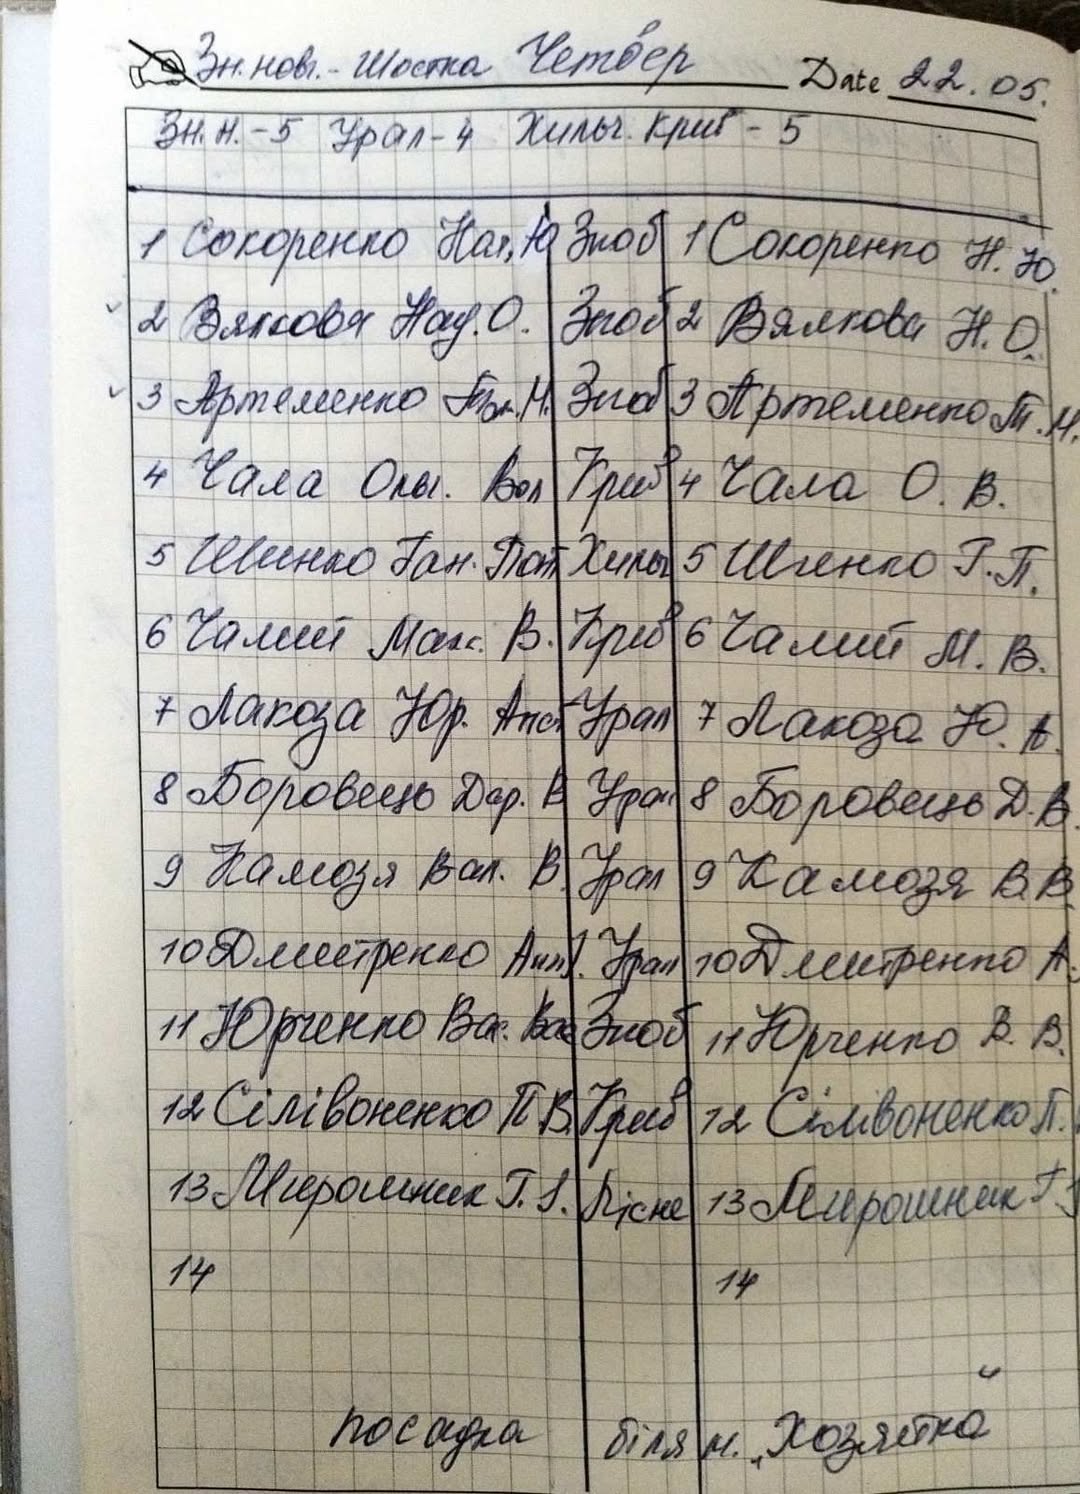 Зн. нов. - Шостка Четвер Date 22.05.
Зн.н. - 5 Урал - 4 Хильч. Крив - 5
1 Сокоренко Нат. Ю Зноб 1 Сокоренко Н. Ю.
2 Вялкова Над. О. Зноб 2 Вялкова Н. О.
3 Артеменко М. Зноб 3 Артеменко Т. М.
4 Чала Оль. Вол Крив 4 Чала О. В.
5 Шинко Ган. Хильч 5 Шинко Г. П.
6 Чалий Макс. В. Крив 6 Чалий М. В.
7 Лакоза Юр. Урал 7 Лакоза Ю. А.
8 Боровець Дар. В Урал 8 Боровець Д. В.
9 Камозя Вал. В. Урал 9 Камозя В. В.
10 Дмитренко Урал 10 Дмитренко А.
11 Юрченко Вас. Вас Зноб 11 Юрченко В. В.
12 Сілівоненко П В. Крив 12 Сілівоненко П.
13 Мирошник Г. І. Пісне 13 Мирошник Г. І
14 14
посадка біля м. „Хозяйка"